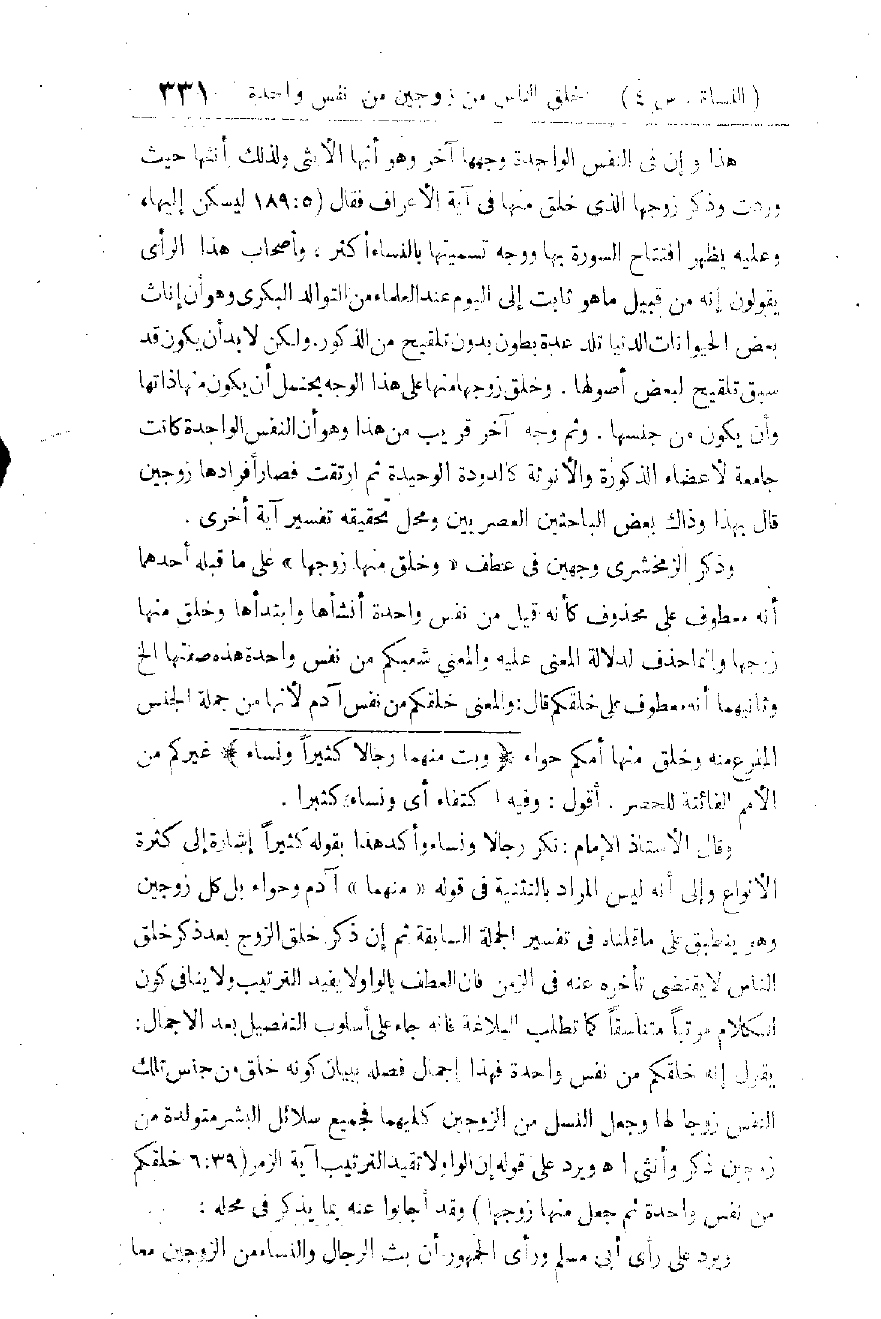 ( النساء . س ٤ ) خلق الناس من زوجين من نفس واحدة ٣٣١
هذا وإن فى النفس الواحدة وجهها آخر وهو أنها الأنثى ولذلك أنثها حيث
وردت وذكر زوجها الذى خلق منها فى آية الأعراف فقال (١٨٩:٥ ليسكن إليها،
وعليه يظهر افتتاح السورة بها ووجه تسميتها بالنساء أكثر ، وأصحاب هذا الرأى
يقولون إنه من قبيل ماهو ثابت إلى اليوم عند العلماء من التوالد البكرى وهو أن إناث
بعض الحيوانات الدنيا تلد عدة بطون بدون تلقيح من الذكور. ولكن لا بد أن يكون قد
سبق تلقيح لبعض أصولها . وخلق زوجها منها على هذا الوجه يحتمل أن يكون منها ذاتها
وأن يكون من جنسها . وثم وجه آخر قريب من هذا وهو أن النفس الواحدة كانت
جامعة لأعضاء الذكورة والأنوثة كالدودة الوحيدة ثم ارتقت فصار أفرادها زوجين
قال بهذا وذاك بعض الباحثين العصريين ومحل تحقيقه تفسير آية أخرى .
وذكر الزمخشرى وجهين فى عطف « وخلق منها زوجها » على ما قبله أحدهما
أنه معطوف على محذوف كأنه قيل من نفس واحدة أنشأها وابتدأها وخلق منها
زوجها وانما حذف لدلالة المعنى عليه والمعني شعبكم من نفس واحدة هذه صفتها الخ
وثانيهما أنه معطوف على خلقكم قال: والمعنى خلقكم من نفس آدم لأنها من جملة الجنس
المفرع منه وخلق منها أمكم حواء ﴿ وبث منهما رجالا كثيراً ونساء ﴾ غيركم من
الأمم الفائتة للحصر . أقول : وفيه اكتفاء أى ونساء كثيرا .
وقال الأستاذ الإمام : نكر رجالا ونساء وأكد هذا بقوله كثيراً إشارة إلى كثرة
الأنواع وإلى أنه ليس المراد بالتثنية فى قوله « منهما » آدم وحواء بل كل زوجين
وهو ينطبق على ماقلناه فى تفسير الجملة السابقة ثم إن ذكر خلق الزوج بعد ذكر خلق
الناس لا يقتضى تأخره عنه فى الزمن فان العطف بالواو لا يفيد الترتيب ولا ينافى كون
الكلام مرتباً متناسقاً كما تطلب البلاغة فانه جاء على أسلوب التفصيل بعد الاجمال:
يقول إنه خلقكم من نفس واحدة فهذا إجمال فصله ببيان كونه خلق من جنس تلك
النفس زوجا لها وجعل النسل من الزوجين كليهما فجميع سلائل البشر متولدة من
زوجين ذكر وأنثى اه ويرد على قوله إن الواو لا تفيد الترتيب آية الزمر (٦:٣٩ خلقكم
من نفس واحدة ثم جعل منها زوجها ) وقد أجابوا عنه بما يذكر فى محله :
ويرد على رأى أبى مسلم ورأى الجمهور أن بث الرجال والنساء من الزوجين معا